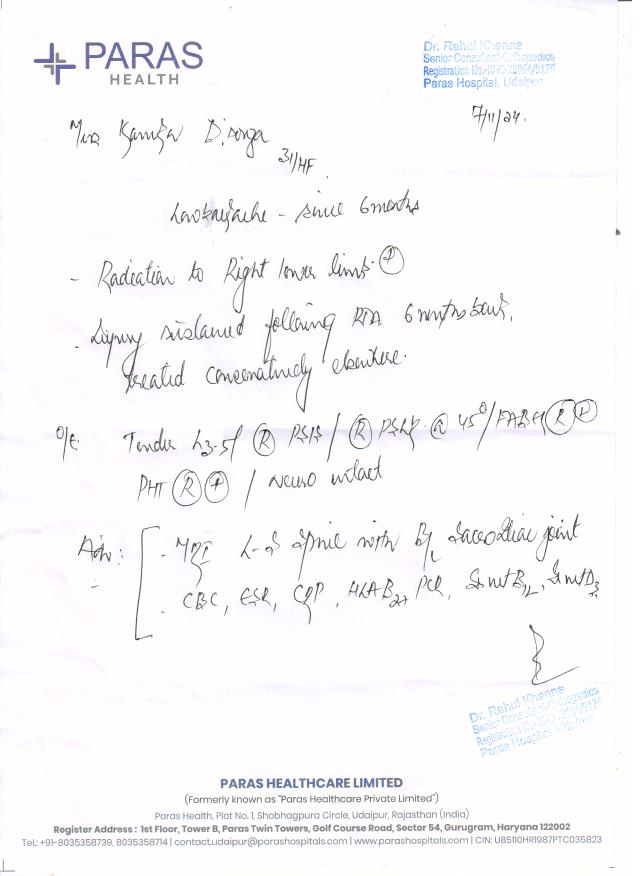 PARAS
HEALTH
Dr. Rahul Khanna
Senior Consultant-Orthopedics
Registration No.-
Paras Hospital, Udaipur
7/11/24.
31/
Lowbackache - since 6 months
- Radiation to Right lower limb. (+)
- Injury sustained following RTA 6 months back,
treated conservatively elsewhere.
O/E Tender L3-5/ (R) PSIS / (R) @ 45°/ FABER (R) (+)
PHT (R) (+) / Neuro intact
Adv: - MRI L-S Spine with B/L Sacroiliac joint
- CBC, ESR, CRP, HLAB27 PCR, Sr Vit B12, Sr Vit D3
Dr. Rahul Khanna
Senior Consultant-Orthopedics
Registration No.-
Paras Hospital, Udaipur
PARAS HEALTHCARE LIMITED
(Formerly known as "Paras Healthcare Private Limited")
Paras Health, Plot No. 1, Shobhagpura Circle, Udaipur, Rajasthan (India)
Register Address : 1st Floor, Tower B, Paras Twin Towers, Golf Course Road, Sector 54, Gurugram, Haryana 122002
Tel.: +91-8035358739, 8035358714 | contact.udaipur@parashospitals.com | www.parashospitals.com | CIN: U85110HR1987PTC035823